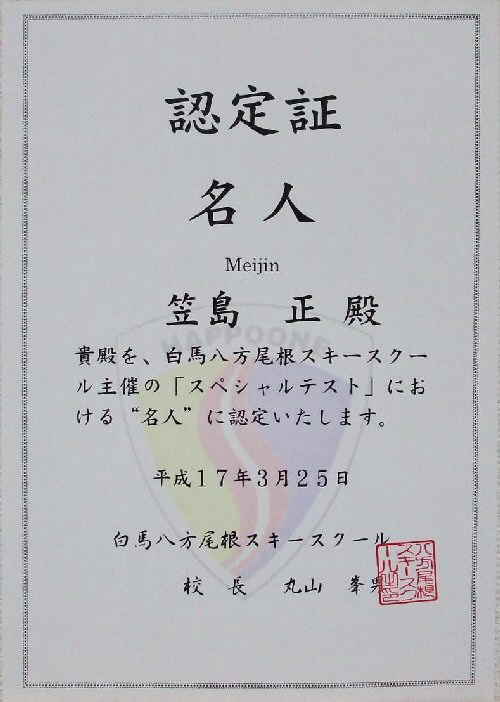 認定証
名人
Meijin
笠島 正 殿
HAPPOONE
貴殿を、白馬八方尾根スキースクー
ル主催の「スペシャルテスト」にお
ける“名人”に認定いたします。
平成17年3月25日
白馬八方尾根スキースクール
校 長 丸山 峯
八方尾根
スキースク